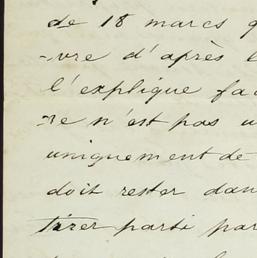 de 18 marcs
-vre d'après
l'explique
-re n'est pas
uniquement de
doit rester dan
tirer parti par